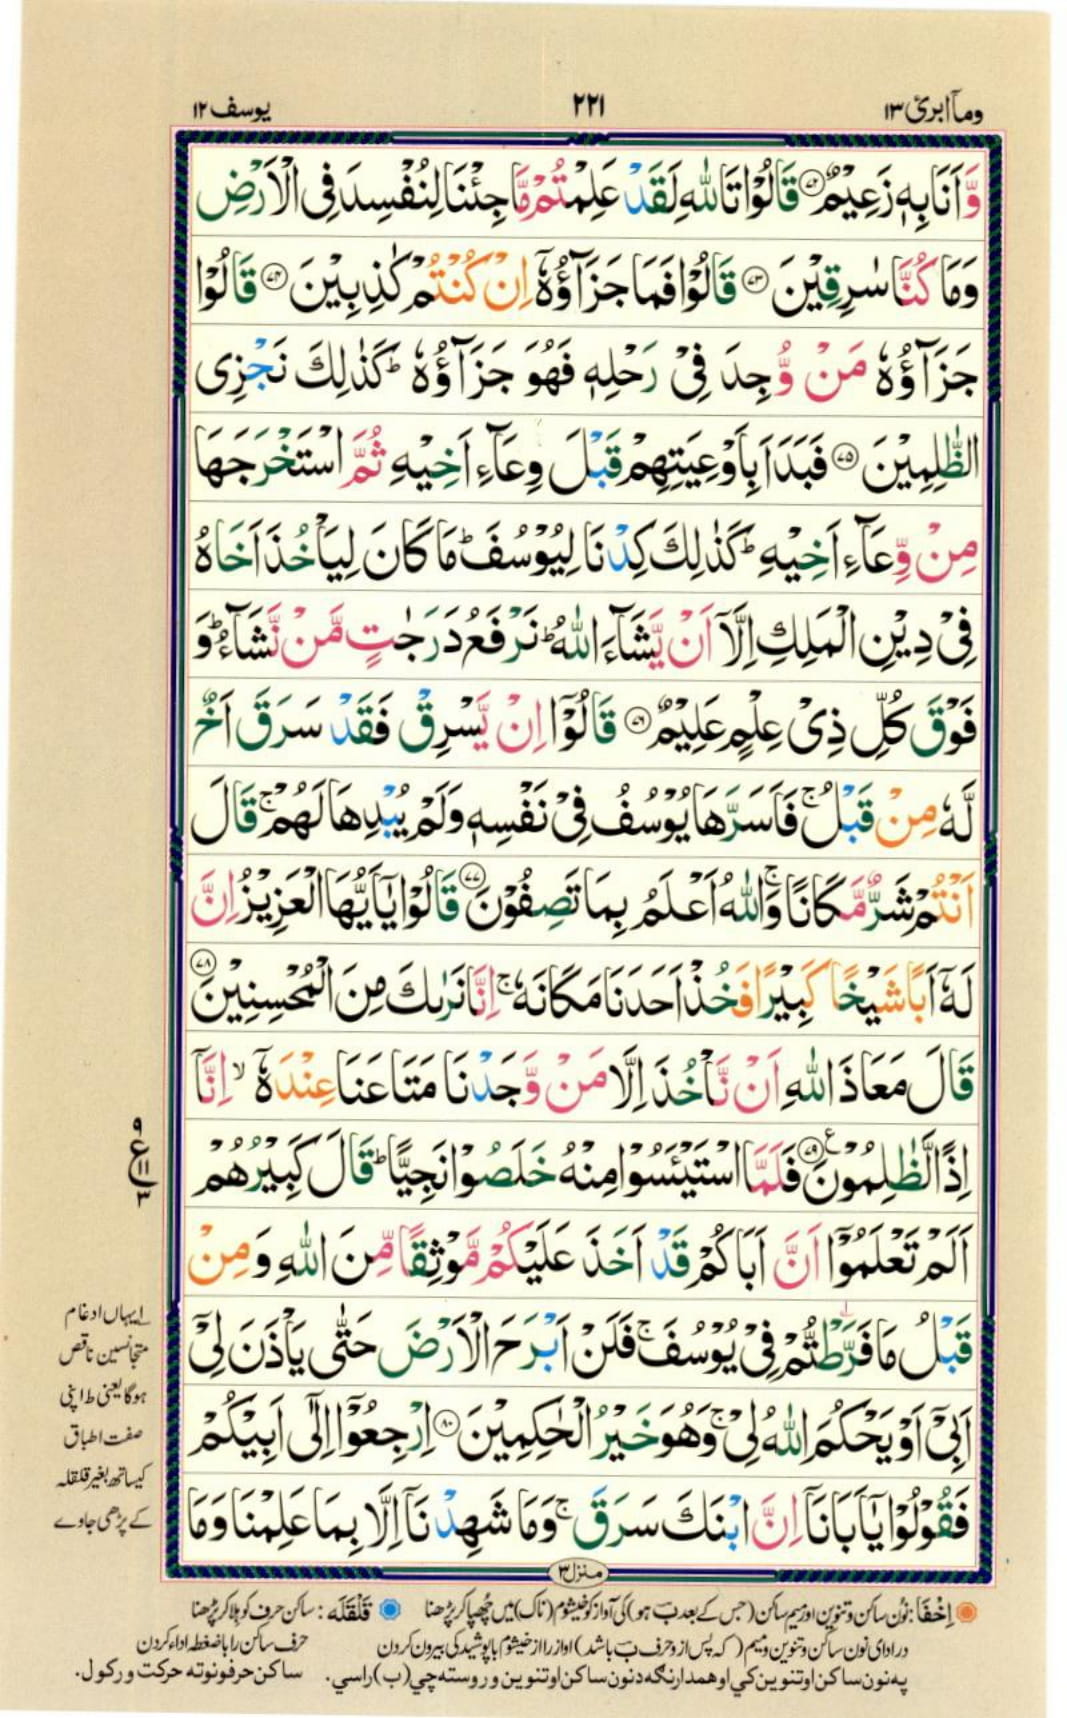 ومآابرئ ١٣
٢٢١
يوسف ١٢
وَّاَنَا بِهٖ زَعِيْمٌ ٧٢ قَالُوْا تَاللّٰهِ لَقَدْ عَلِمْتُمْ مَّا جِئْنَا لِنُفْسِدَ فِى الْاَرْضِ
وَمَا كُنَّا سٰرِقِيْنَ ٧٣ قَالُوْا فَمَا جَزَآؤُهٗۤ اِنْ كُنْتُمْ كٰذِبِيْنَ ٧٤ قَالُوْا
جَزَآؤُهٗ مَنْ وُّجِدَ فِىْ رَحْلِهٖ فَهُوَ جَزَآؤُهٗ ؕ كَذٰلِكَ نَجْزِى
الظّٰلِمِيْنَ ٧٥ فَبَدَاَ بِاَوْعِيَتِهِمْ قَبْلَ وِعَآءِ اَخِيْهِ ثُمَّ اسْتَخْرَجَهَا
مِنْ وِّعَآءِ اَخِيْهِ ؕ كَذٰلِكَ كِدْنَا لِيُوْسُفَ ؕ مَا كَانَ لِيَاْخُذَ اَخَاهُ
فِىْ دِيْنِ الْمَلِكِ اِلَّاۤ اَنْ يَّشَآءَ اللّٰهُ ؕ نَرْفَعُ دَرَجٰتٍ مَّنْ نَّشَآءُ ؕ وَ
فَوْقَ كُلِّ ذِىْ عِلْمٍ عَلِيْمٌ ٧٦ قَالُوْۤا اِنْ يَّسْرِقْ فَقَدْ سَرَقَ اَخٌ
لَّهٗ مِنْ قَبْلُ ۚ فَاَسَرَّهَا يُوْسُفُ فِىْ نَفْسِهٖ وَلَمْ يُبْدِهَا لَهُمْ ۚ قَالَ
اَنْتُمْ شَرٌّ مَّكَانًا ۚ وَاللّٰهُ اَعْلَمُ بِمَا تَصِفُوْنَ ٧٧ قَالُوْا يٰۤاَيُّهَا الْعَزِيْزُ اِنَّ
لَهٗۤ اَبًا شَيْخًا كَبِيْرًا فَخُذْ اَحَدَنَا مَكَانَهٗ ۚ اِنَّا نَرٰٮكَ مِنَ الْمُحْسِنِيْنَ ٧٨
قَالَ مَعَاذَ اللّٰهِ اَنْ نَّاْخُذَ اِلَّا مَنْ وَّجَدْنَا مَتَاعَنَا عِنْدَهٗۤ ۙ اِنَّاۤ
اِذًا لَّظٰلِمُوْنَ ٧٩ ع فَلَمَّا اسْتَيْئَسُوْا مِنْهُ خَلَصُوْا نَجِيًّا ؕ قَالَ كَبِيْرُهُمْ
اَلَمْ تَعْلَمُوْۤا اَنَّ اَبَاكُمْ قَدْ اَخَذَ عَلَيْكُمْ مَّوْثِقًا مِّنَ اللّٰهِ وَمِنْ
قَبْلُ مَا فَرَّطْتُّمْ فِىْ يُوْسُفَ ۚ فَلَنْ اَبْرَحَ الْاَرْضَ حَتّٰى يَاْذَنَ لِىْۤ
اَبِىْۤ اَوْ يَحْكُمَ اللّٰهُ لِىْ ۚ وَهُوَ خَيْرُ الْحٰكِمِيْنَ ٨٠ اِرْجِعُوْۤا اِلٰٓى اَبِيْكُمْ
فَقُوْلُوْا يٰۤاَبَانَاۤ اِنَّ ابْنَكَ سَرَقَ ۚ وَمَا شَهِدْنَاۤ اِلَّا بِمَا عَلِمْنَا وَمَا
٩
ع ١١
٣
١ یہاں ادغام
متجانسین ناقص
ہوگا یعنی ط اپنی
صفت اطباق
کیساتھ بغیر قلقلہ
کے پڑھی جاوے
منزل ٣
اِخْفَا: نُون ساکن و تنوین اور میم ساکن (جس کے بعد ب ہو) کی آواز کو خیشوم (ناک) میں چُھپا کر پڑھنا قَلْقَلَه: ساکن حرف کو ہلا کر پڑھنا
درادای نون ساکن وتنوین ومیم (که پس از و حرف ب باشد) اواز را از خیشوم باپوشیدگی بیرون کردن حرف ساکن را باضغطه اداء کردن
په نون ساکن او تنوین کي او همدارنګه د نون ساکن او تنوین وروسته چي (ب) راسي. ساکن حرفونو ته حرکت ورکول.